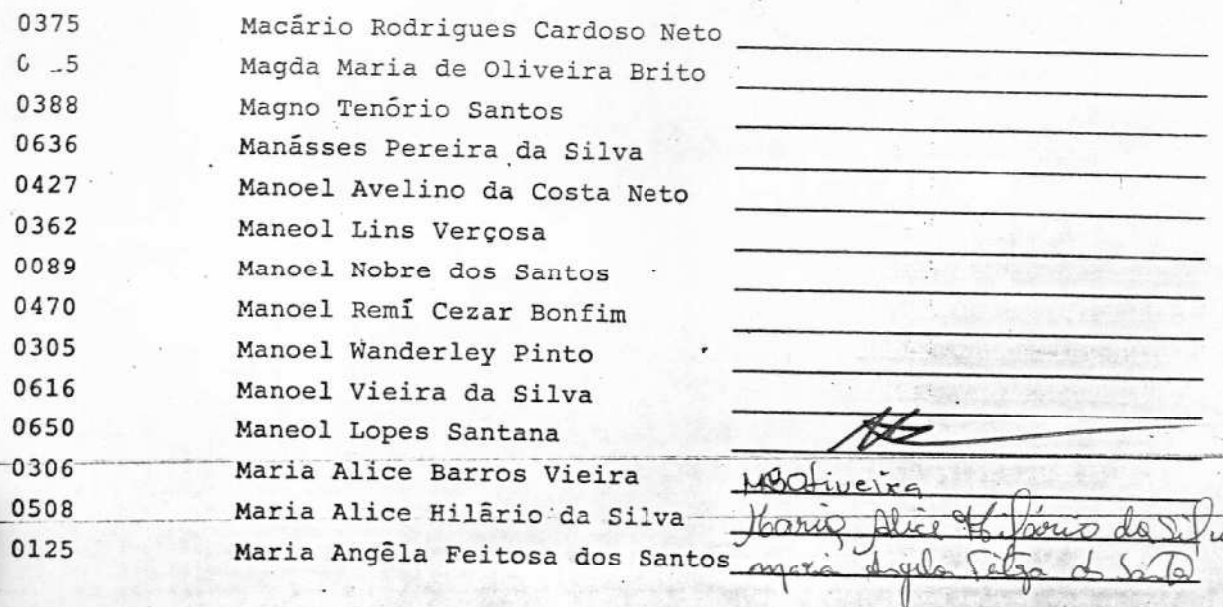 0375 Macário Rodrigues Cardoso Neto
5 Magda Maria de Oliveira Brito
0388 Magno Tenório Santos
0636 Manásses Pereira da Silva
0427 Manoel Avelino da Costa Neto
0362 Maneol Lins Verçosa
0089 Manoel Nobre dos Santos
0470 Manoel Remí Cezar Bonfim
0305 Manoel Wanderley Pinto
0616 Manoel Vieira da Silva
0650 Maneol Lopes Santana
0306 Maria Alice Barros Vieira
0508 Maria Alice Hilârio da Silva Maria Alice Hilário da Silva
0125 Maria Angêla Feitosa dos Santos maria Angela